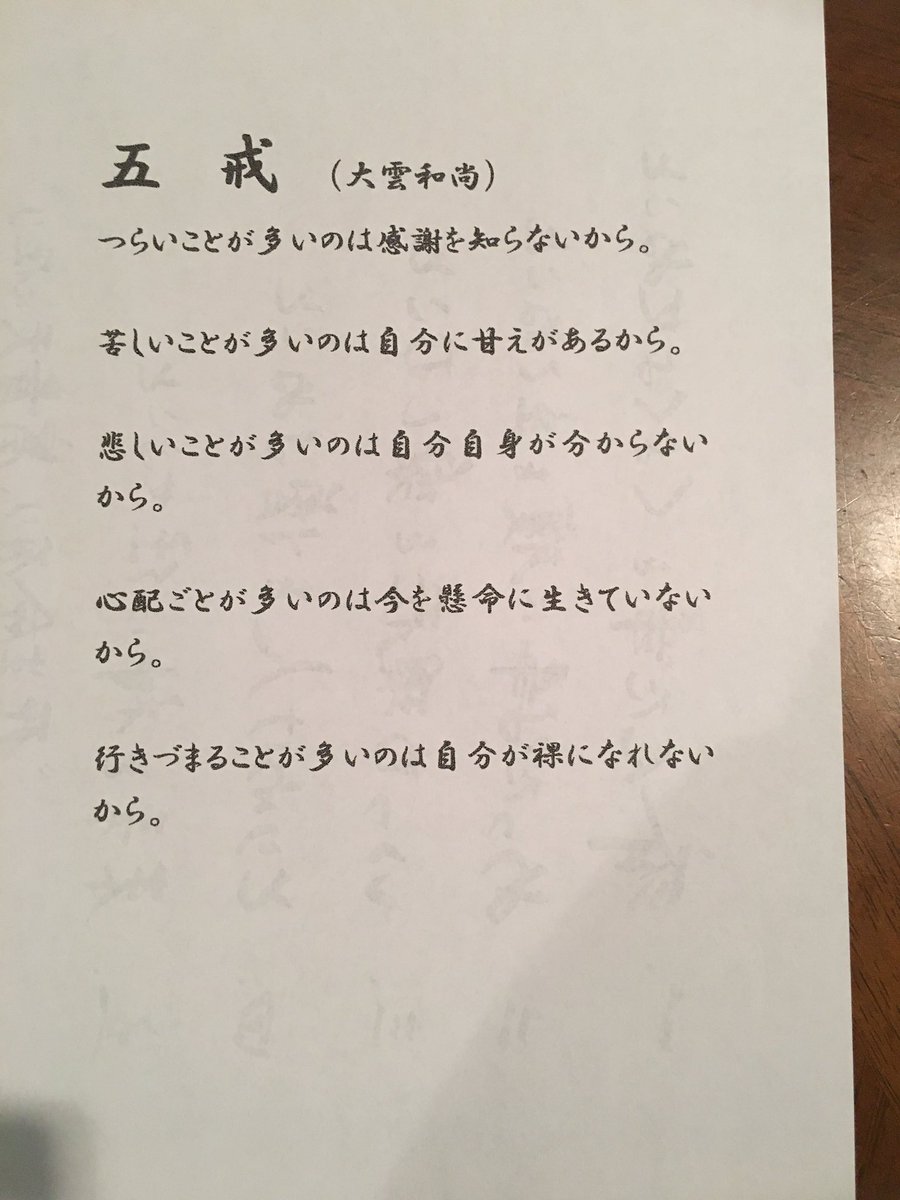 五 戒 （大雲和尚）
つらいことが多いのは感謝を知らないから。
苦しいことが多いのは自分に甘えがあるから。
悲しいことが多いのは自分自身が分からない
から。
心配ごとが多いのは今を懸命に生きていない
から。
行きづまることが多いのは自分が裸になれない
から。